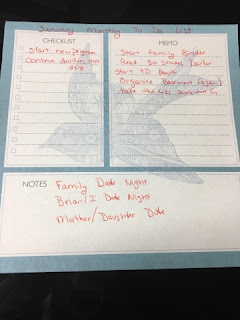 January Monthly To Do List
CHECKLIST
Start new program
Continue drinking my
MEMO
Start Family Binder
Read 50 Shades Darker
Start P.D. Book
Organize Basement (again)
take the kids
NOTES
Family Date Night
Brian/I Date Night
Mother/Daughter Date